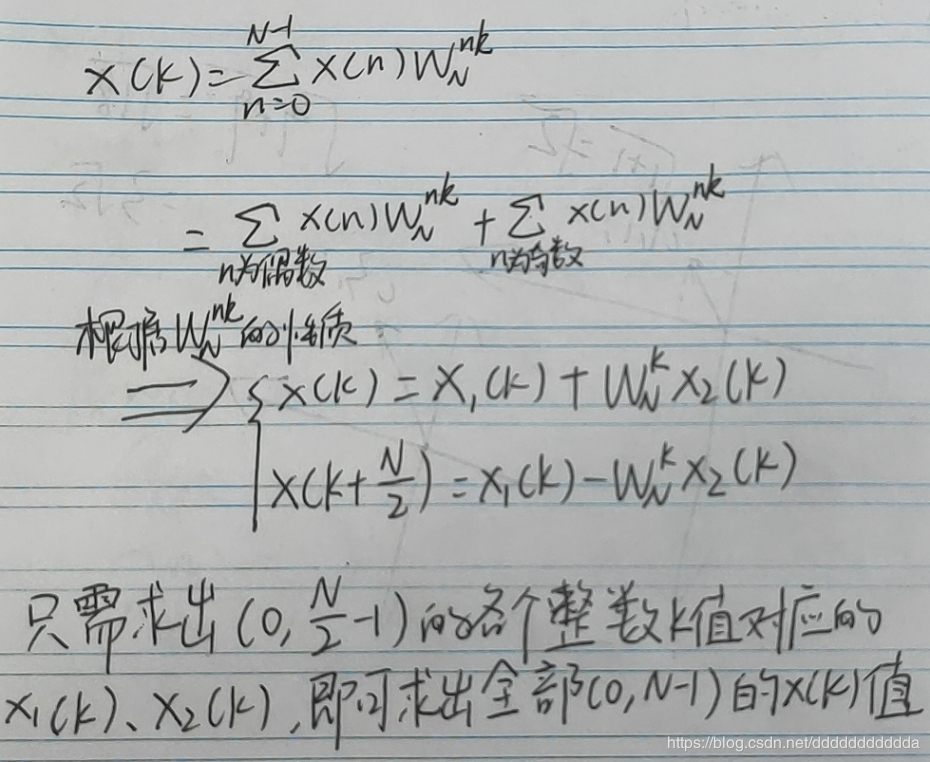 X(k)=∑_{n=0}^{N-1} x(n)W_N^{nk}
= ∑_{n为偶数} x(n)W_N^{nk} + ∑_{n为奇数} x(n)W_N^{nk}
根据W_N^{nk}的性质
⇒ { X(k) = X₁(k) + W_N^k X₂(k)
X(k+N/2) = X₁(k) - W_N^k X₂(k)
只需求出(0, N/2-1)的各个整数k值对应的
X₁(k)、X₂(k),即可求出全部(0,N-1)的X(k)值
https://blog.csdn.net/dddddddddddda